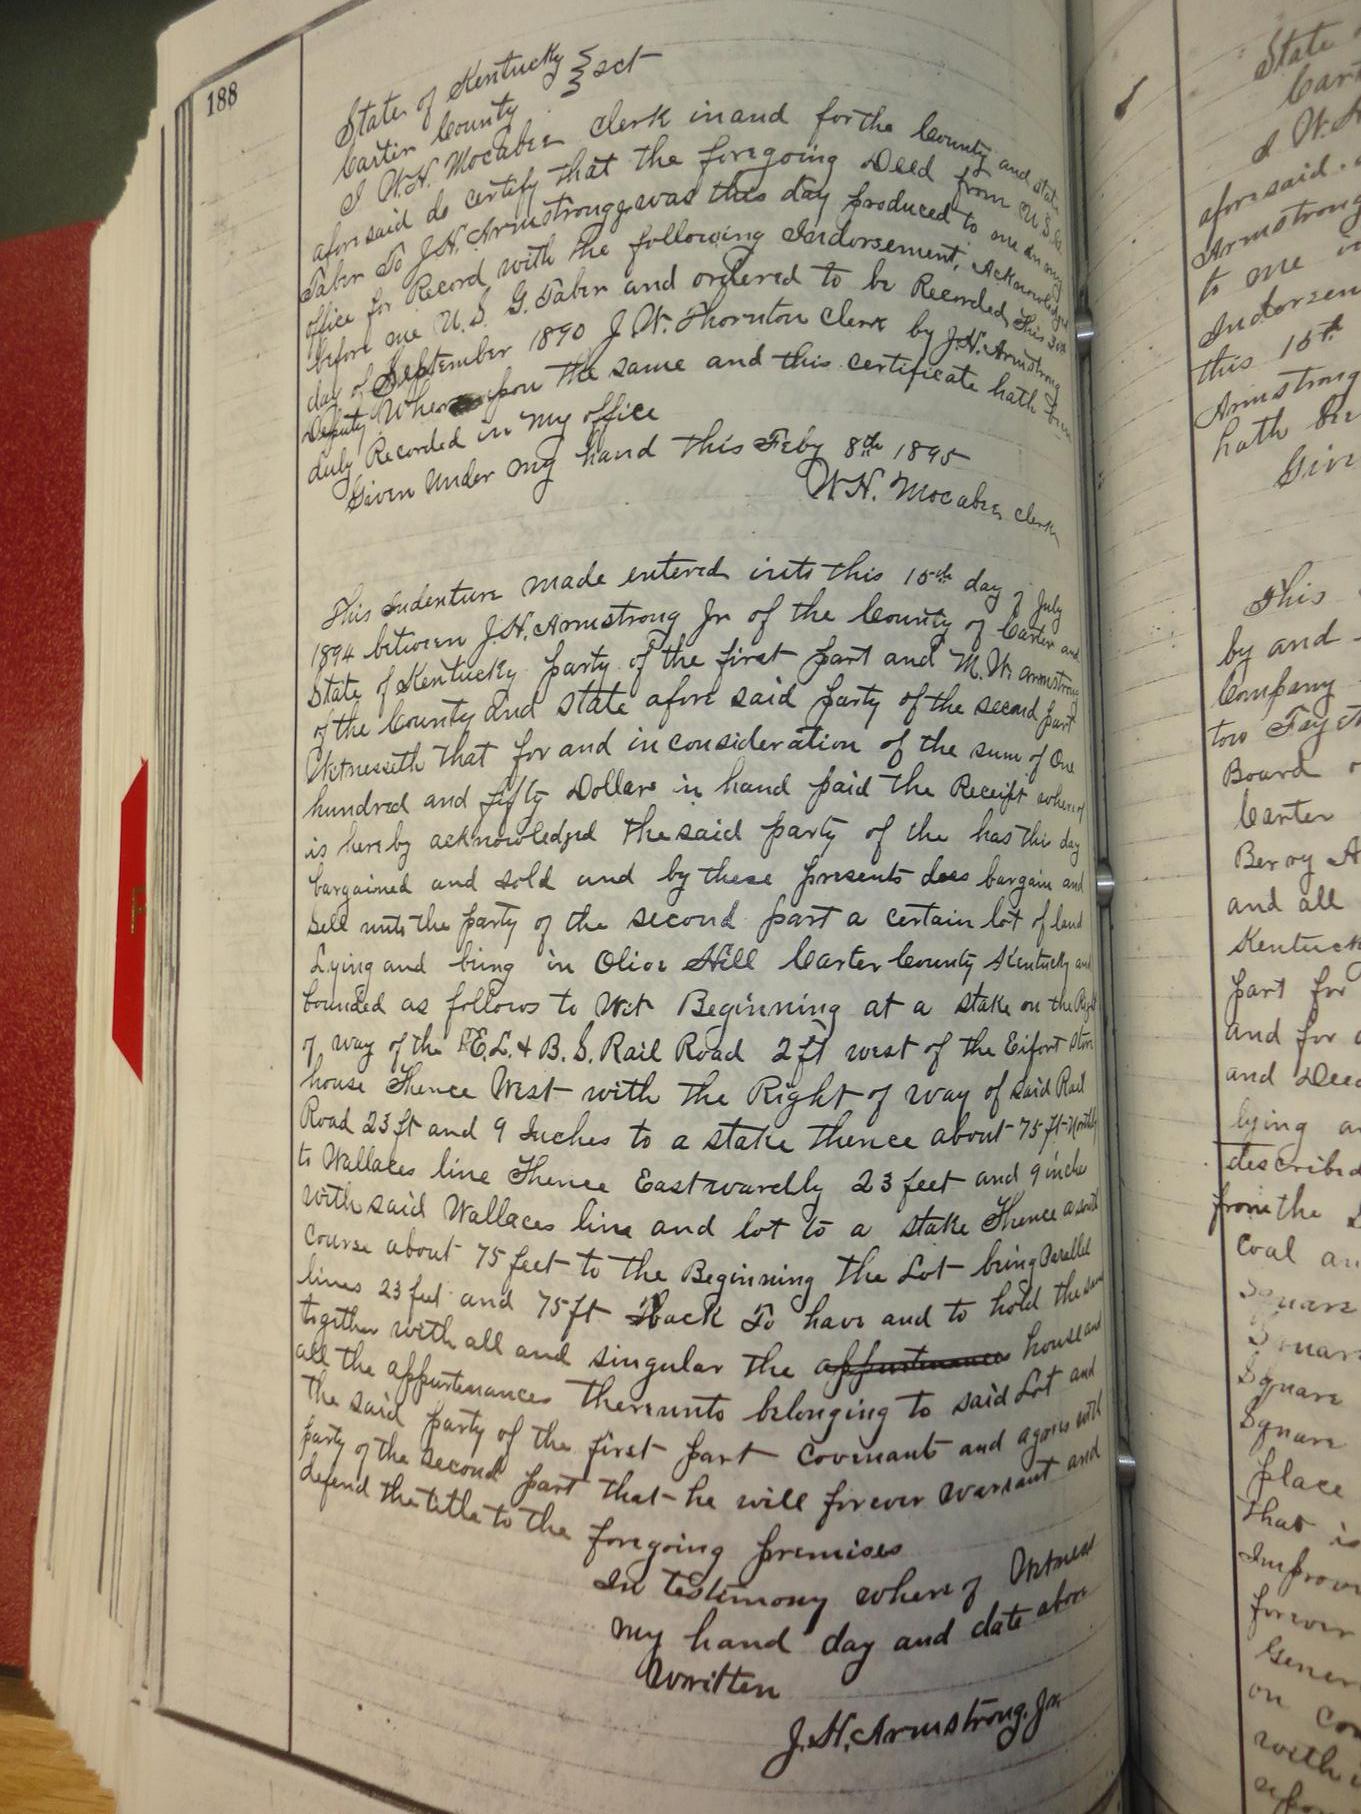 188
State of Kentucky } sct
Carter County
I W.H. Mocabee clerk in and for the County and state
afore said do certify that the foregoing Deed from U.S.G.
Taber To J.H. Armstrong was this day produced to me in my
office for Record with the following Indorsement, Acknowledged
before me U.S.G. Taber and ordered to be Recorded, this
day of September 1890 J.W. Thornton Clerk by J.H. Armstrong
Deputy Where upon the same and this certificate hath been
duly Recorded in my office
Given Under my hand this Feby 8th 1895
W.H. Mocabee, clerk
This indenture made entered into this 15th day of July
1894 between J.H. Armstrong Jr of the County of Carter and
State of Kentucky party of the first part and M.W. Armstrong
of the County and state afore said party of the second part
Witnesseth that for and in consideration of the sum of One
hundred and fifty Dollars in hand paid the Receipt where of
is here by acknowledged the said party of the has this day
bargained and sold and by these presents does bargain and
sell unto the party of the second part a certain lot of land
Lying and being in Olive Hill Carter County Kentucky and
bounded as follows to Wit Beginning at a stake on the Right
of way of the E.L. & B.S. Rail Road 2 ft west of the Eifort store
house Thence West with the Right of way of said Rail
Road 23 ft and 9 Inches to a stake thence about 75 ft Northly
to Wallaces line Thence Eastwardly 23 feet and 9 inches
with said Wallaces line and lot to a stake Thence a south
course about 75 feet to the Beginning the Lot being Parallel
lines 23 feet and 75 ft Back To have and to hold the same
together with all and singular the appurtenances house and
all the appurtenances thereunto belonging to said Lot and
the said party of the first part covenants and agrees with
party of the second part that he will forever warrant and
defend the title to the foregoing premises
In testimony where of Witness
my hand day and date above
Written
J.H. Armstrong. Jr
State
Cart
I W.H
afore said.
Armstrong
to me
Indorsem
this 15th
Armstrong
hath be
Give
This
by and
Company
tow Fayett
Board
Carter
Beroy A
and all
Kentuck
part for
and for
and Deed
lying an
described
from the
coal an
Square
Square
Square
Square
place
that is
Improve
forever
Gener
on con
with